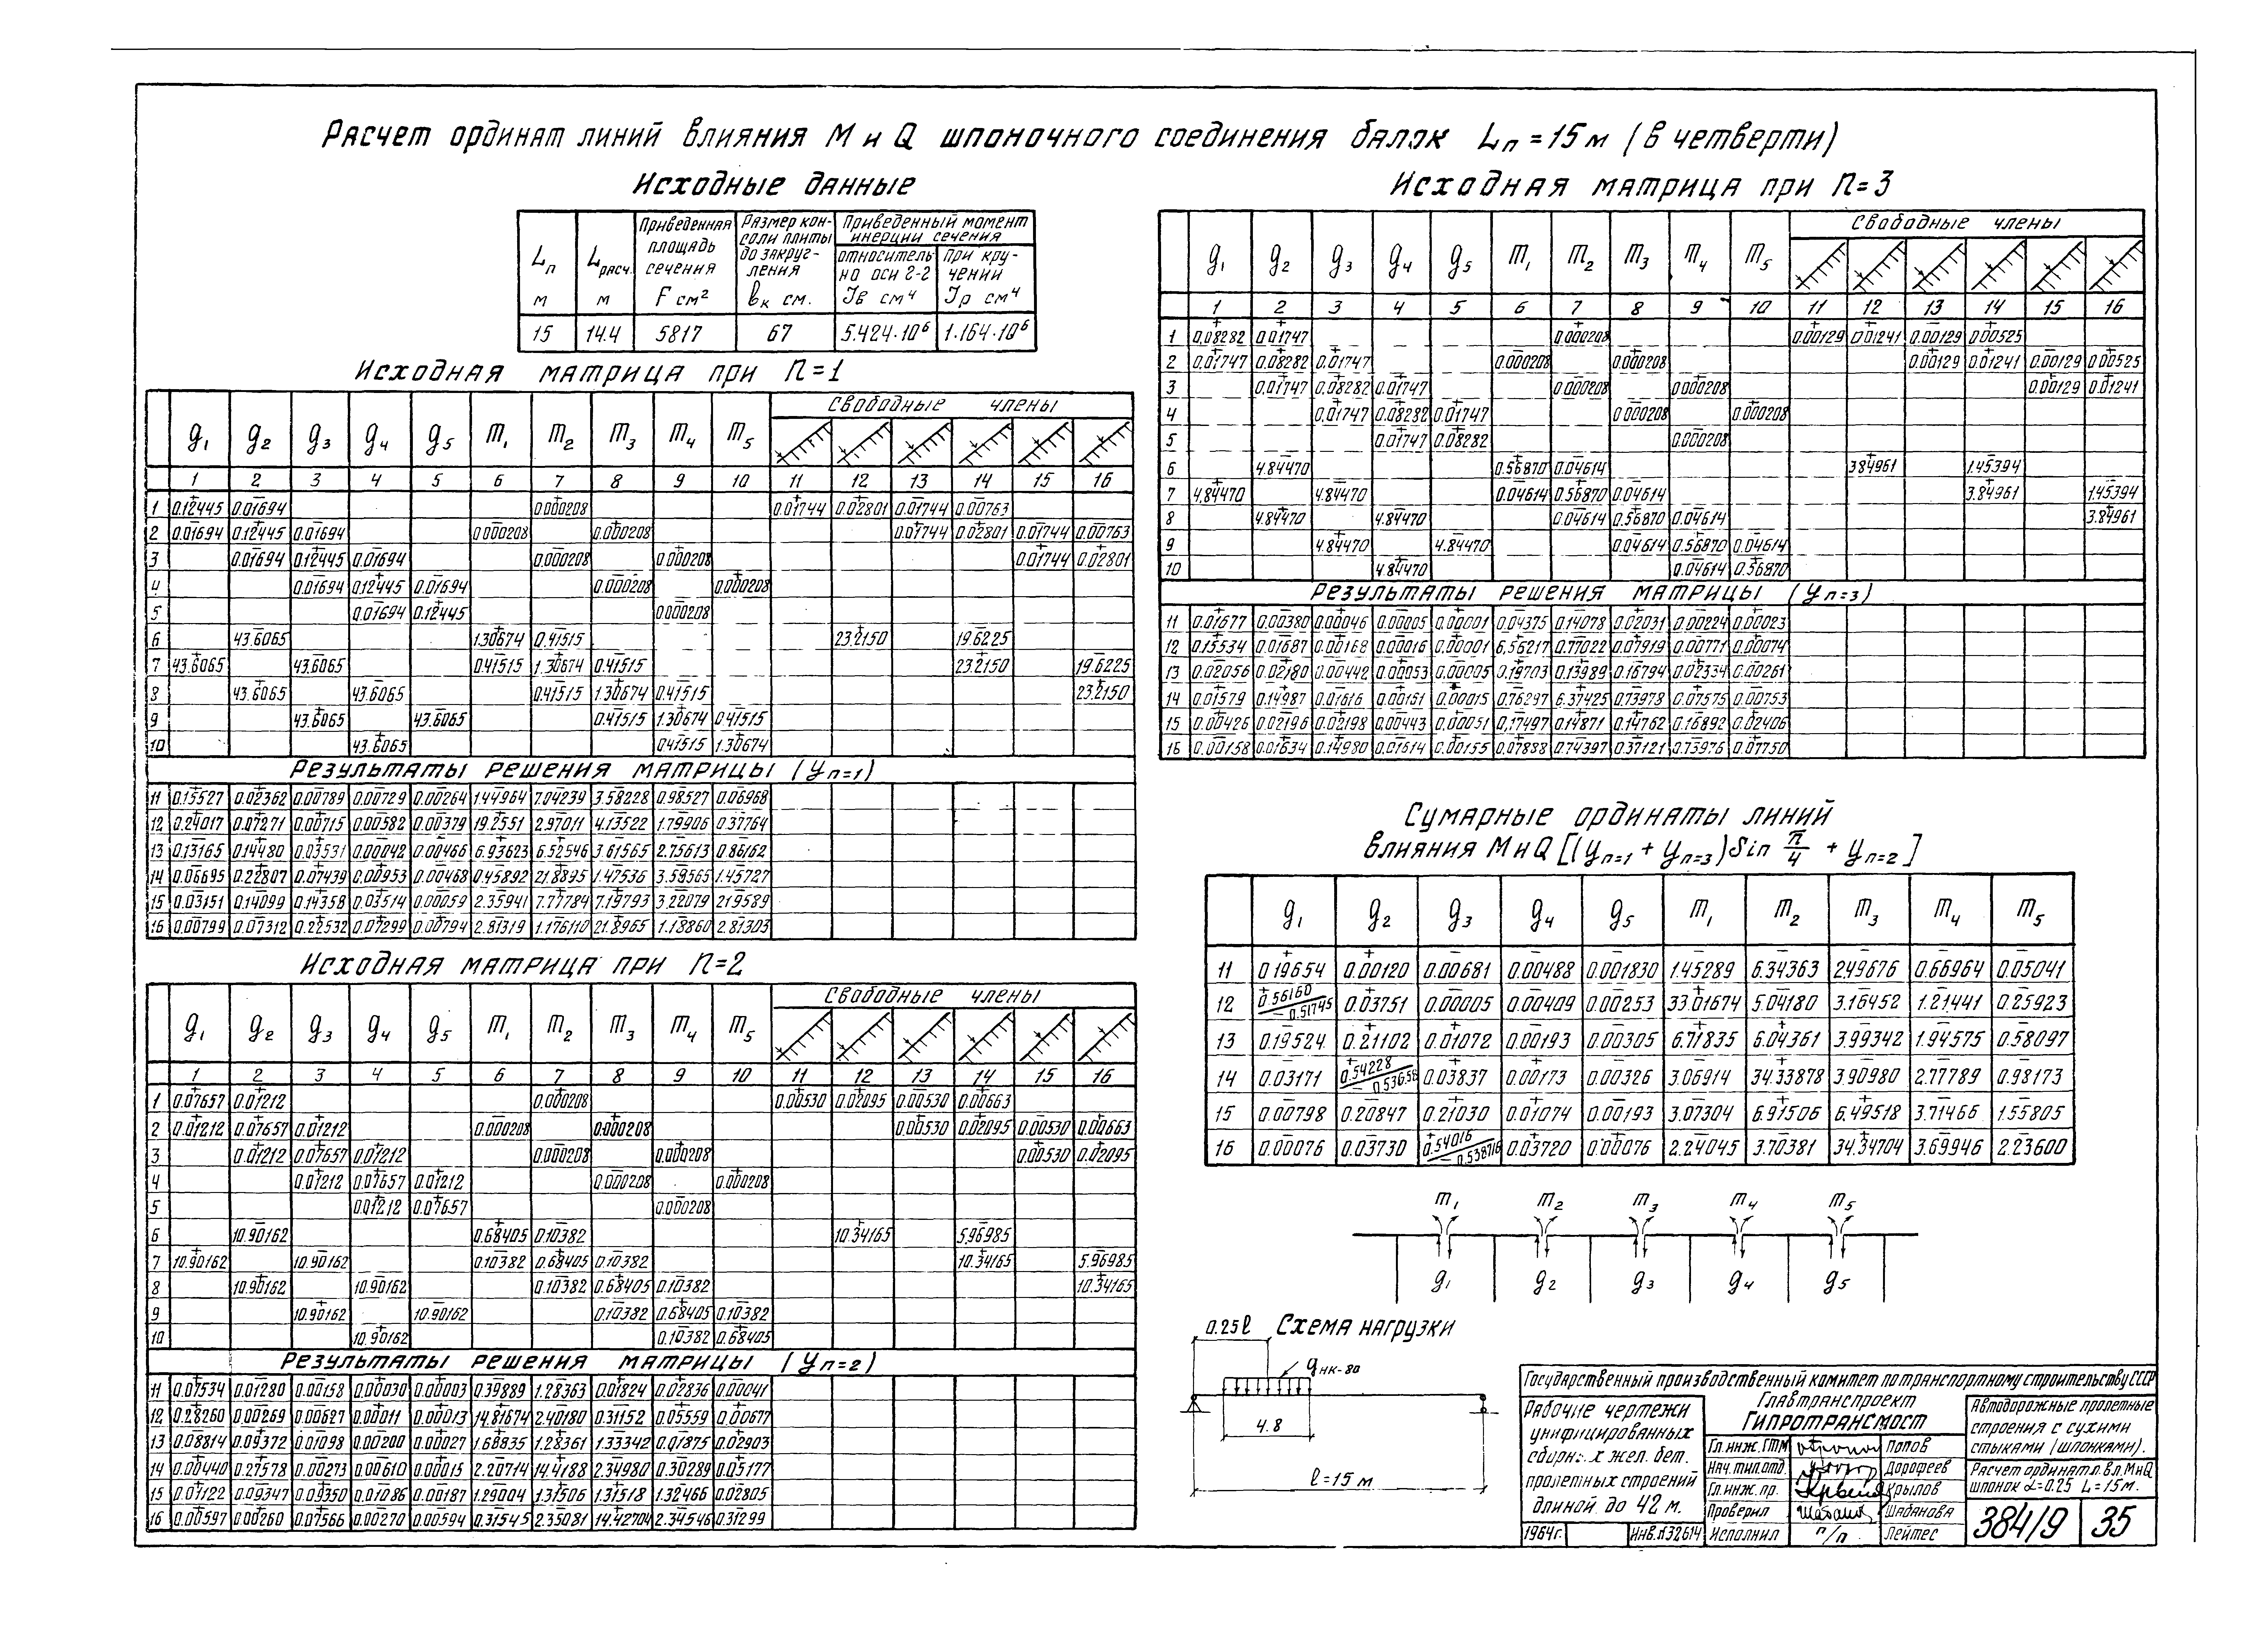 Расчет ординат линий влияния М и Q шпоночного соединения балок Lп = 15 м (в четверти)
Исходные данные
Lп м | Lрасч. м | Приведенная площадь сечения F см² | Размер консоли плиты до закругления bк см. | Приведенный момент инерции сечения
относительно оси 2-2 Jв см⁴ | при кручении Jр см⁴
15 | 14.4 | 5817 | 67 | 5.424·10⁶ | 1.164·10⁶
Исходная матрица при n=1
g₁ g₂ g₃ g₄ g₅ m₁ m₂ m₃ m₄ m₅ Свободные члены
1 2 3 4 5 6 7 8 9 10 11 12 13 14 15 16
1 0.12445 0.01694 0.000208 0.01744 0.02801 0.01744 0.00763
2 0.01694 0.12445 0.01694 0.000208 0.000208 0.01744 0.02801 0.01744 0.00763
3 0.01694 0.12445 0.01694 0.000208 0.000208 0.01744 0.02801
4 0.01694 0.12445 0.01694 0.000208 0.000208
5 0.01694 0.12445 0.000208
6 43.6065 1.30674 0.41515 23.2150 19.6225
7 43.6065 43.6065 0.41515 1.30674 0.41515 23.2150 19.6225
8 43.6065 43.6065 0.41515 1.30674 0.41515 23.2150
9 43.6065 43.6065 0.41515 1.30674 0.41515
10 43.6065 0.41515 1.30674
Результаты решения матрицы (yп=1)
11 0.15527 0.02362 0.00789 0.00729 0.00264 1.44964 7.04239 3.58228 0.98527 0.06968
12 0.24017 0.07271 0.00715 0.00582 0.00379 19.2551 2.97011 4.13522 1.79906 0.37764
13 0.13165 0.14480 0.03531 0.00042 0.00466 6.93623 6.52546 3.61565 2.75613 0.86162
14 0.06695 0.22807 0.07439 0.00953 0.00468 0.45892 21.8895 1.47536 3.59565 1.45727
15 0.03151 0.14099 0.14358 0.03514 0.00059 2.35941 7.77784 7.19793 3.22079 2.19589
16 0.00799 0.07312 0.22532 0.07299 0.00794 2.81319 1.176110 21.8965 1.18860 2.81303
Исходная матрица при n=2
g₁ g₂ g₃ g₄ g₅ m₁ m₂ m₃ m₄ m₅ Свободные члены
1 2 3 4 5 6 7 8 9 10 11 12 13 14 15 16
1 0.07657 0.01212 0.000208 0.00530 0.02095 0.00530 0.00663
2 0.01212 0.07657 0.01212 0.000208 0.000208 0.00530 0.02095 0.00530 0.00663
3 0.01212 0.07657 0.01212 0.000208 0.000208 0.00530 0.02095
4 0.01212 0.07657 0.01212 0.000208 0.000208
5 0.01212 0.07657 0.000208
6 10.90162 0.68405 0.10382 10.34165 5.96985
7 10.90162 10.90162 0.10382 0.68405 0.10382 10.34165 5.96985
8 10.90162 10.90162 0.10382 0.68405 0.10382 10.34165
9 10.90162 10.90162 0.10382 0.68405 0.10382
10 10.90162 0.10382 0.68405
Результаты решения матрицы (yп=2)
11 0.07534 0.01280 0.00158 0.00030 0.00003 0.39889 1.28363 0.01824 0.02836 0.00041
12 0.28260 0.00269 0.00627 0.00011 0.00013 14.81674 2.40180 0.31152 0.05559 0.00677
13 0.08814 0.09372 0.01098 0.00200 0.00027 1.68835 1.28361 1.33342 0.01875 0.02903
14 0.00440 0.27578 0.00273 0.00610 0.00015 2.20714 14.4188 2.34980 0.30289 0.05177
15 0.01122 0.09347 0.09350 0.01086 0.00187 1.29004 1.31506 1.31518 1.32466 0.02805
16 0.00597 0.00260 0.07566 0.00270 0.00594 0.31545 2.35081 14.42704 2.34546 0.31299
Исходная матрица при n=3
g₁ g₂ g₃ g₄ g₅ m₁ m₂ m₃ m₄ m₅ Свободные члены
1 2 3 4 5 6 7 8 9 10 11 12 13 14 15 16
1 0.08282 0.01747 0.000208 0.00129 0.01241 0.00129 0.00525
2 0.01747 0.08282 0.01747 0.000208 0.000208 0.00129 0.01241 0.00129 0.00525
3 0.01747 0.08282 0.01747 0.000208 0.000208 0.00129 0.01241
4 0.01747 0.08282 0.01747 0.000208 0.000208
5 0.01747 0.08282 0.000208
6 4.84470 0.56870 0.04614 3.84961 1.45394
7 4.84470 4.84470 0.04614 0.56870 0.04614 3.84961 1.45394
8 4.84470 4.84470 0.04614 0.56870 0.04614 3.84961
9 4.84470 4.84470 0.04614 0.56870 0.04614
10 4.84470 0.04614 0.56870
Результаты решения матрицы (yп=3)
11 0.01677 0.00380 0.00046 0.00005 0.00001 0.04375 0.14078 0.02031 0.00224 0.00023
12 0.15534 0.01687 0.00168 0.00016 0.00001 6.56217 0.77022 0.07919 0.00771 0.00074
13 0.02056 0.02180 0.00442 0.00053 0.00005 0.19703 0.13989 0.16794 0.02334 0.00261
14 0.01579 0.14987 0.01616 0.00161 0.00015 0.76297 6.37425 0.73978 0.07575 0.00753
15 0.00426 0.02196 0.02198 0.00443 0.00051 0.17497 0.14871 0.14762 0.16892 0.02406
16 0.00158 0.01634 0.14980 0.01614 0.00155 0.07888 0.74397 0.37121 0.73976 0.07750
Сумарные ординаты линий
влияния М и Q [(yп=1 + yп=3) Sin π/4 + yп=2]
g₁ g₂ g₃ g₄ g₅ m₁ m₂ m₃ m₄ m₅
11 0.19654 0.00120 0.00681 0.00488 0.001830 1.45289 6.34363 2.49676 0.66964 0.05041
12 +0.56160/−0.51745 0.03751 0.00005 0.00409 0.00253 33.01674 5.04180 3.16452 1.21441 0.25923
13 0.19524 0.21102 0.01072 0.00193 0.00305 6.71835 6.04361 3.99342 1.94575 0.58097
14 0.03171 +0.54228/−0.53658 0.03837 0.00173 0.00326 3.06914 34.33878 3.90980 2.77789 0.98173
15 0.00798 0.20847 0.21030 0.01074 0.00193 3.07304 6.91506 6.49518 3.71466 1.55805
16 0.00076 0.03730 +0.54016/−0.538716 0.03720 0.00076 2.24045 3.70381 34.34704 3.69946 2.23600
m₁ m₂ m₃ m₄ m₅
g₁ g₂ g₃ g₄ g₅
0.25ℓ Схема нагрузки
qнк-80
4.8
ℓ=15 м
Государственный производственный комитет по транспортному строительству СССР
Главтранспроект
Гипротрансмост
Рабочие чертежи
унифицированных
сборных жел. бет.
пролетных строений
длиной до 42 м.
1964г. Инв.№32614
Гл.инж.ГТМ Попов
Нач.тип.отд. Дорофеев
Гл.инж.пр. Крылов
Проверил Шабанова
Исполнил п/п Лейтес
Автодорожные пролетные
строения с сухими
стыками (шпонками).
Расчет ординат л.вл. М и Q
шпонок α=0.25 L=15м.
384/9 35